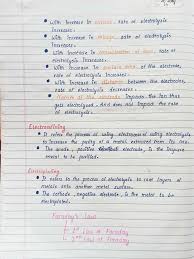 • With increase in current, rate of electrolysis
increases.
• With increase in voltage, rate of electrolysis
increases.
• With increase in concentration of ions, rate of
electrolysis increases.
• With increase in surface area of the electrode,
rate of electrolysis increases.
• With increase in distance between the electrodes,
rate of electrolysis decreases.
• Nature of the electrode: Impacts the ion that
gets electrolysed. And does not impact the rate
of electrolysis.
Electrorefining
• It refers the process of using electrolysis
to increase the purity of a metal extracted from its ore.
• The anode, positive electrode, is the impure
metal to be purified.
Electroplating
• It refers to the process of electrolysis to coat layers of
metals onto another metal surface.
• The cathode, negative electrode, is the metal to be
electroplated.
Faraday's Law
→ 1st Law of Faraday
→ 2nd Law of Faraday